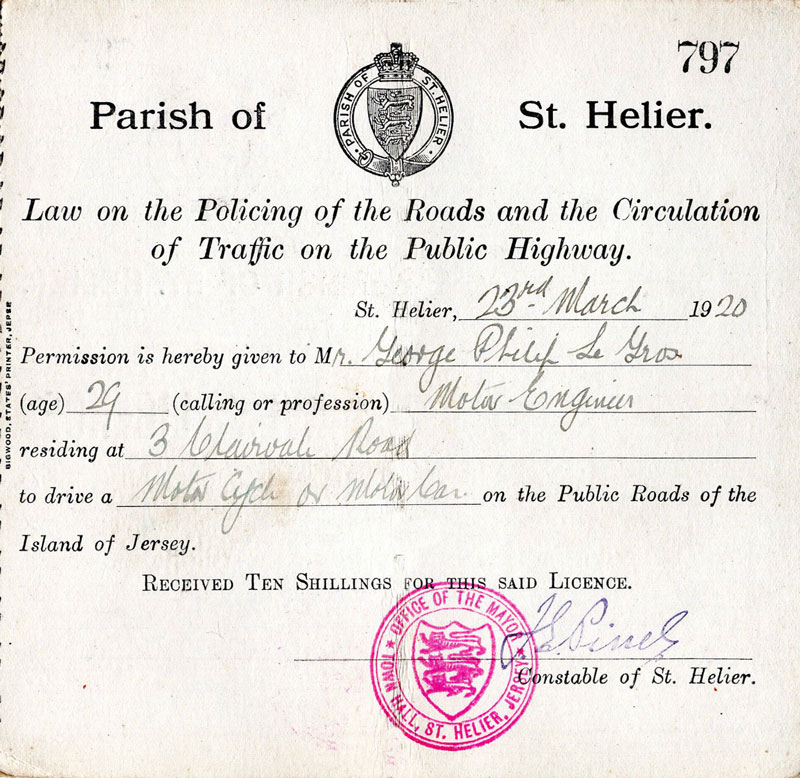 797
PARISH OF ST. HELIER
Parish of St. Helier.
Law on the Policing of the Roads and the Circulation
of Traffic on the Public Highway.
St. Helier, 23rd March 1920
Permission is hereby given to Mr. George Philip Le Gros
(age) 29 (calling or profession) Motor Engineer
residing at 3 Clairvale Road
to drive a Motor Cycle or Motor Car on the Public Roads of the
Island of Jersey.
RECEIVED TEN SHILLINGS FOR THIS SAID LICENCE.
J E Pinel
Constable of St. Helier.
OFFICE OF THE MAYOR
TOWN HALL, ST. HELIER, JERSEY
BIGWOOD, STATES' PRINTER, JERSE